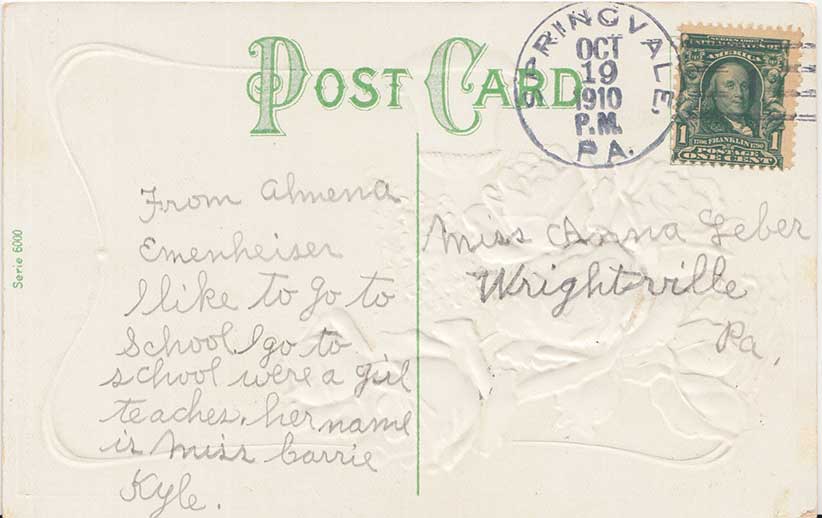 POST CARD
SPRINGVALE,
OCT
19
1910
P.M.
PA.
SERIES 1902
UNITED STATES OF
AMERICA
1706 FRANKLIN 1790
1 POSTAGE 1
ONE CENT
Serie 6000
From Almena
Emenheiser
I like to go to
School. I go to
school were a girl
teaches. her name
is Miss Carrie
Kyle.
Miss Anna Leber
Wrightsville
Pa,